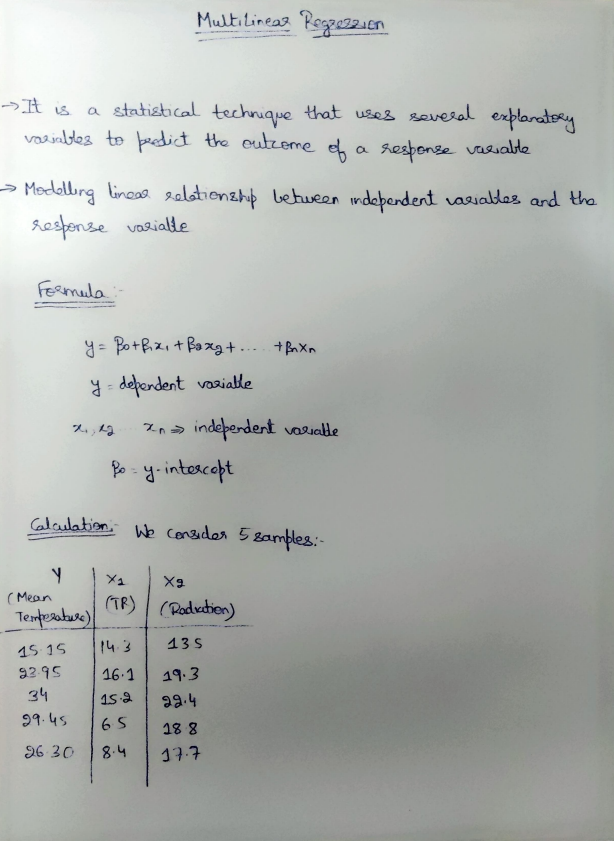 MultiLinear Regression
→ It is a statistical technique that uses several explanatory
variables to predict the outcome of a response variable
→ Modelling linear relationship between independent variables and the
response variable
Formula:-
y = β0+β1x1+β2x2+.....+βnxn
y = dependent variable
x1,x2 xn ⇒ independent variable
β0 = y-intercept
Calculation:- We consider 5 samples:-
Y X1 X2
(Mean Temperature) (TR) (Radiation)
15.15 14.3 13.5
23.95 16.1 19.3
34 15.2 22.4
29.45 6.5 18.8
26.30 8.4 17.7